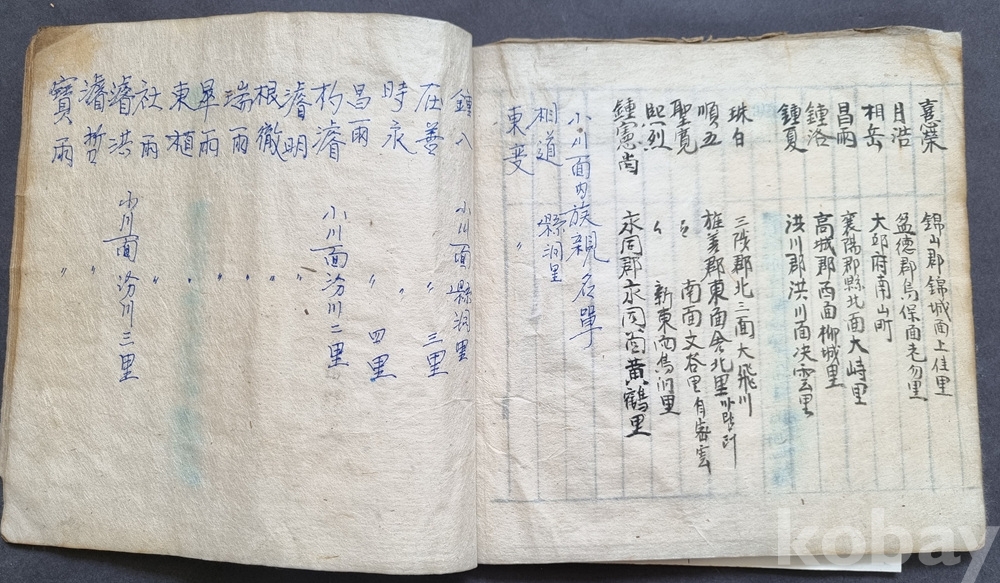 憙榮 錦山郡錦城面上佳里
日浩 盈德郡烏保面老勿里
相岳 大邱府南山町
昌雨 襄陽郡縣北面大峙里
鍾洛 高城郡西面柳城里
鍾夏 洪川郡洪川面決雲里
珠白 三陟郡北三面大飛川
順五 旌善郡東面舍北里
聖寬 〃 南面文谷里
熙烈 〃 新東面鳥洞里
鍾憲尚 永同郡永同面黃鶴里
小川面內族親名單
相道 縣洞里
東燮 〃
鍾八 小川面縣洞里
在善 三里
時永 〃
昌雨 〃 四里
杓濬 小川面汾川二里
濬明 〃
根徹 〃
瑞雨 〃
畢雨 〃
東植 〃
社雨 〃
濬洪 小川面汾川三里
濬哲 〃
寶雨 〃
kobay